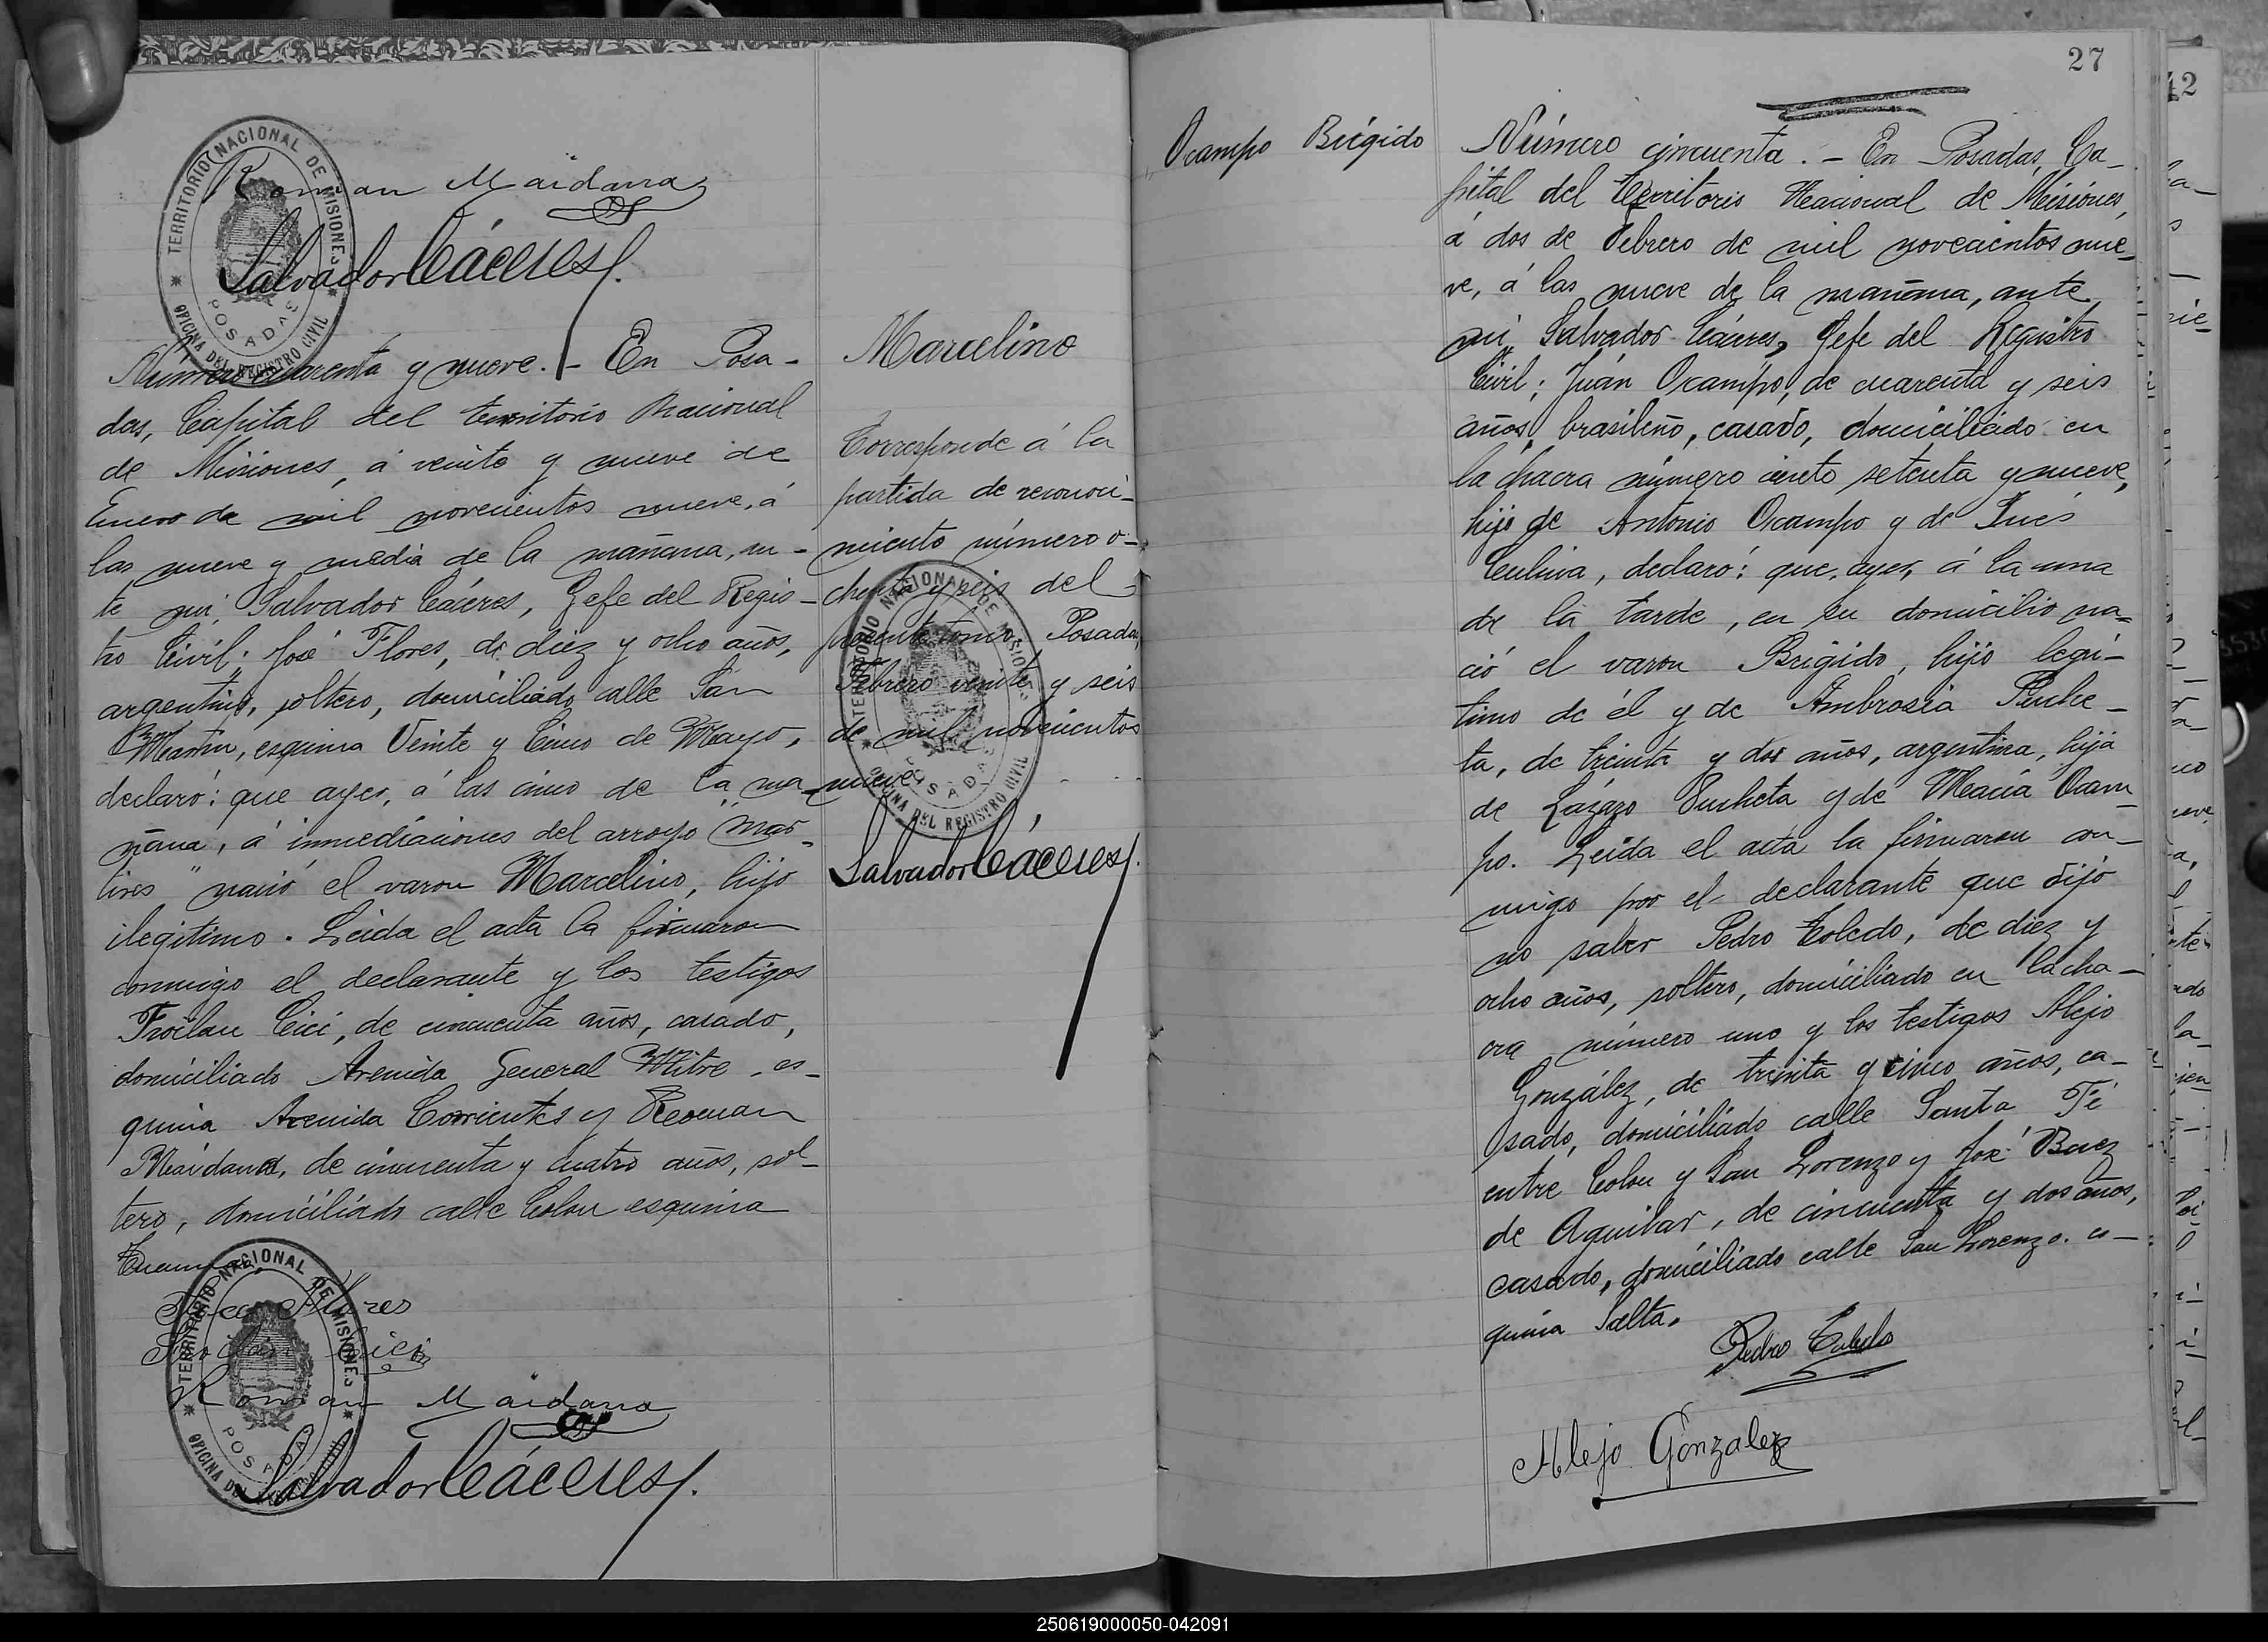 TERRITORIO NACIONAL DE MISIONES
POSADAS
OFICINA DEL REGISTRO CIVIL
Roman Maidana
Salvador Cáceres
Número cuarenta y nueve. - En Posa-
das, Capital del territorio Nacional
de Misiones, á veinte y nueve de
Enero de mil novecientos nueve, á
las nueve y media de la mañana, an-
te mi, Salvador Cáceres, Gefe del Regis-
tro Civil; José Flores, de diez y ocho años,
argentino, soltero, domiciliado calle San
Martin, esquina Veinte y Cinco de Mayo,
declaró: que ayer, á las cinco de la ma-
ñana, á inmediaciones del arroyo "Mar-
tires" nació el varon Marcelino, hijo
ilegitimo. Leida el acta la firmaron
conmigo el declarante y los testigos
Froilan Cici, de cincuenta años, casado,
domiciliado Avenida General Mitre, es-
quina Avenida Corrientes y Roman
Maidana, de cincuenta y cuatro años, sol-
tero, domiciliado calle Colon esquina
Flores
Roman Maidana
Salvador Cáceres
TERRITORIO NACIONAL DE MISIONES
POSADAS
OFICINA DEL
Marcelino
Corresponde á la
partida de reconoci-
miento número o-
chenta y seis del
presente tomo. Posadas,
Febrero veinte y seis
de mil novecientos
nueve
Salvador Cáceres
TERRITORIO NACIONAL DE MISIONES
POSADAS
OFICINA DEL REGISTRO CIVIL
27
42
Ocampo Brígido
Número cincuenta. - En Posadas, Ca-
pital del territorio Nacional de Misiones,
á dos de Febrero de mil novecientos nue-
ve, á las nueve de la mañana, ante
mi, Salvador Cáceres, Gefe del Registro
Civil; Juan Ocampo, de cuarenta y seis
años, brasileño, casado, domiciliado en
la chacra número ciento setenta y nueve,
hijo de Antonio Ocampo y de Inés
declaró: que ayer, á la una
de la tarde, en su domicilio na-
ció el varon Brígido, hijo legí-
timo de él y de Ambrosia
ta, de treinta y dos años, argentina, hija
de Lázaro y de María Ocam-
po. Leida el acta la firmaron con-
migo por el declarante que dijo
no saber Pedro Toledo, de diez y
ocho años, soltero, domiciliado en la cha-
cra número uno y los testigos Alejo
González, de treinta y cinco años, ca-
sado, domiciliado calle Santa Fé
entre Colon y San Lorenzo y José Baez
de Aguilar, de cincuenta y dos años,
casado, domiciliado calle San Lorenzo es-
quina Salta.
Pedro Toledo
Alejo Gonzalez
250619000050-042091